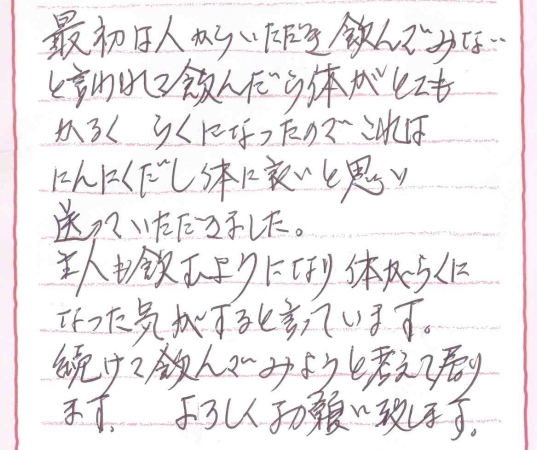 最初は人からいただき飲んでみない
と言われて飲んだら体がとても
かるく らくになったのでこれは
にんにくだし体に良いと思い
送っていただきました。
主人も飲むようになり体がらくに
なった気がすると言っています。
続けて飲んでみようと考えて居り
ます。 よろしくお願い致します。